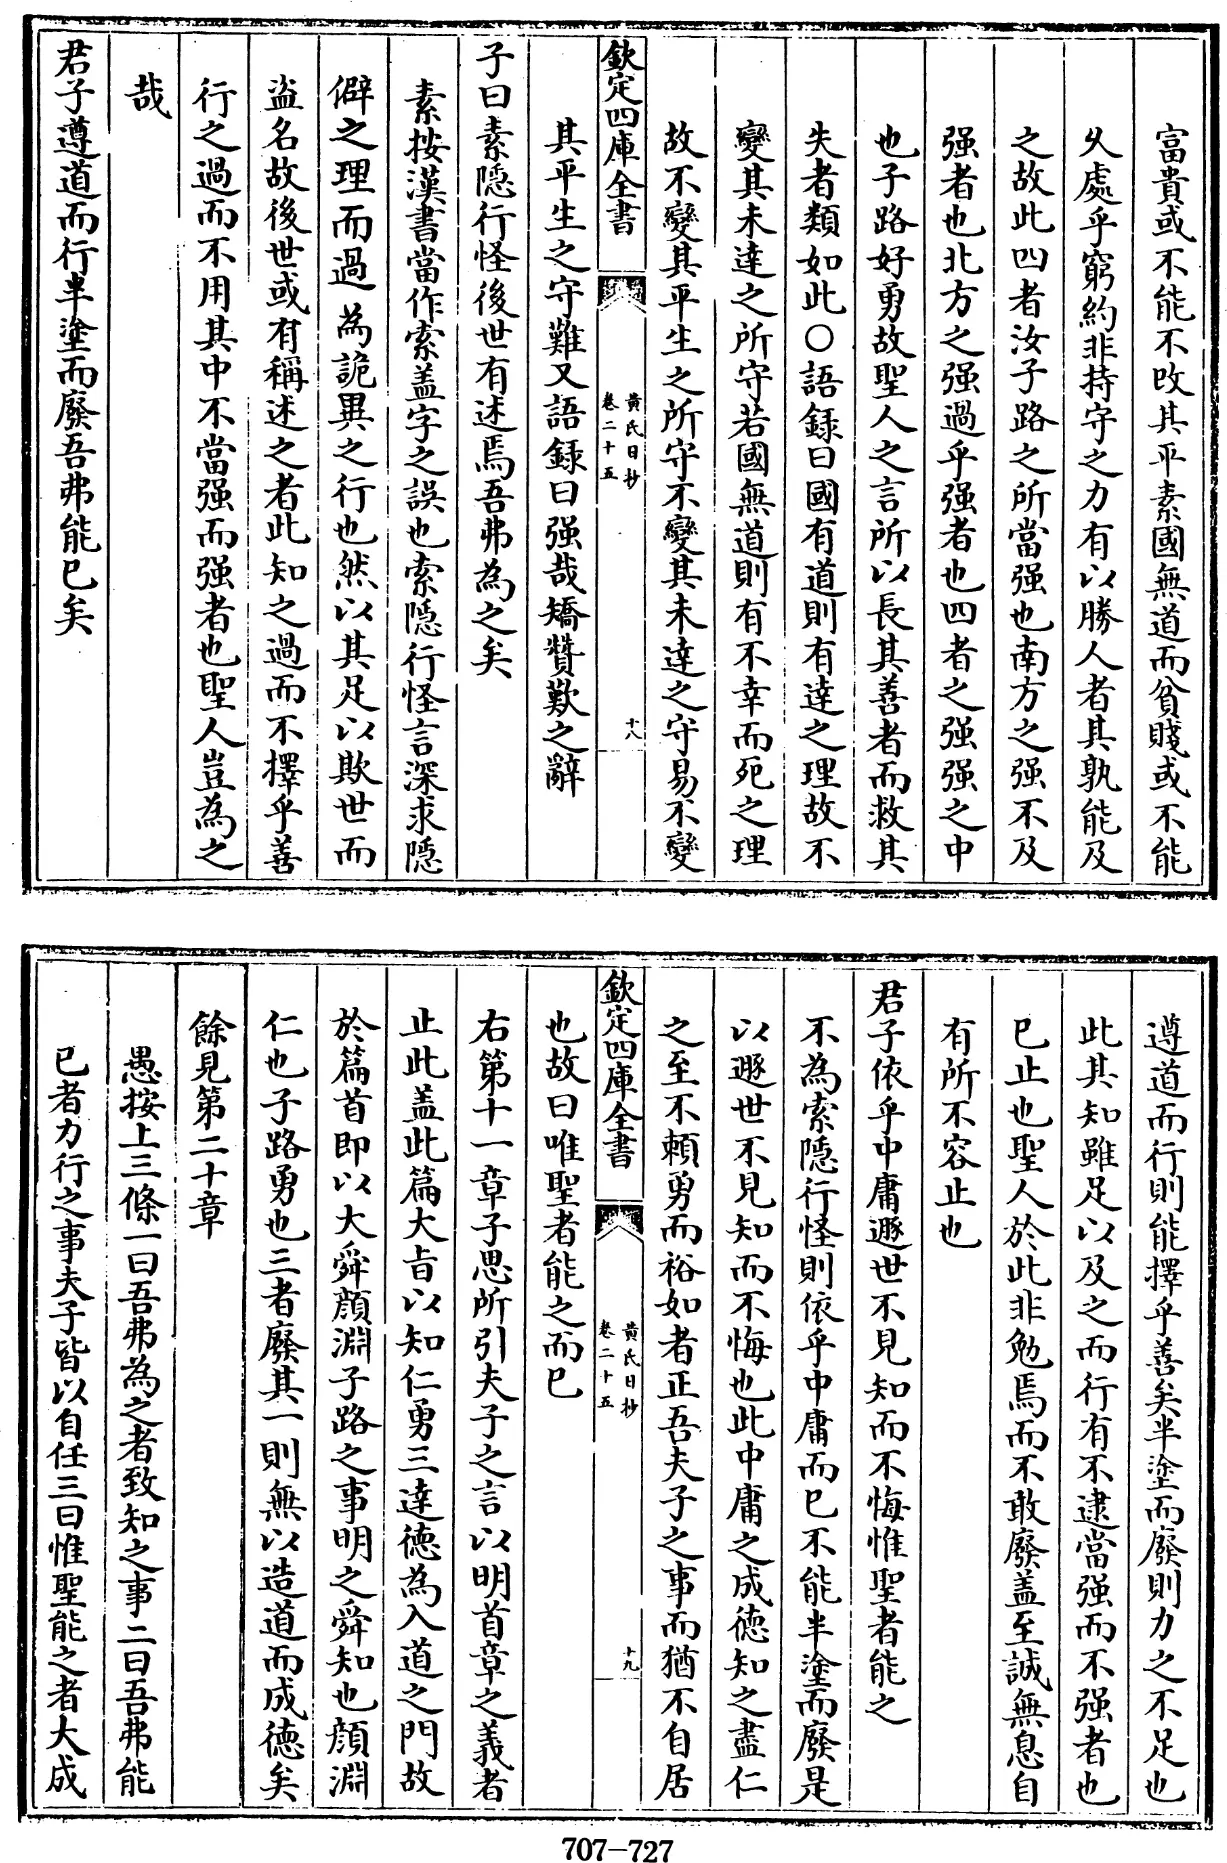 富貴或不能不改其平素國無道而貧賤或不能
乆處乎窮約非持守之力有以勝人者其孰能及
之故此四者汝子路之所當强也南方之强不及
强者也北方之强過乎强者也四者之强强之中
也子路好勇故聖人之言所以長其善者而救其
失者類如此○語録曰國有道則有達之理故不
變其未達之所守若國無道則有不幸而死之理
故不變其平生之所守不變其未達之守易不變
欽定四庫全書
黄氏日抄
卷二十五
十八
其平生之守難又語録曰强哉矯贊歎之辭
子曰素隠行怪後世有述焉吾弗為之矣
素按漢書當作索盖字之誤也索隠行怪言深求隠
僻之理而過為詭異之行也然以其足以欺世而
盗名故後世或有稱述之者此知之過而不擇乎善
行之過而不用其中不當强而强者也聖人豈為之
哉
君子遵道而行半塗而廢吾弗能已矣
遵道而行則能擇乎善矣半塗而廢則力之不足也
此其知雖足以及之而行有不逮當强而不强者也
已止也聖人於此非勉焉而不敢廢盖至誠無息自
有所不容止也
君子依乎中庸遯世不見知而不悔惟聖者能之
不為索隠行怪則依乎中庸而已不能半塗而廢是
以遯世不見知而不悔也此中庸之成德知之盡仁
之至不賴勇而裕如者正吾夫子之事而猶不自居
欽定四庫全書
黄氏日抄
卷二十五
十九
也故曰唯聖者能之而已
右第十一章子思所引夫子之言以明首章之義者
止此盖此篇大旨以知仁勇三達德為入道之門故
於篇首即以大舜顔淵子路之事明之舜知也顔淵
仁也子路勇也三者廢其一則無以造道而成德矣
餘見第二十章
愚按上三條一曰吾弗為之者致知之事二曰吾弗能
已者力行之事夫子皆以自任三曰惟聖能之者大成
707-727